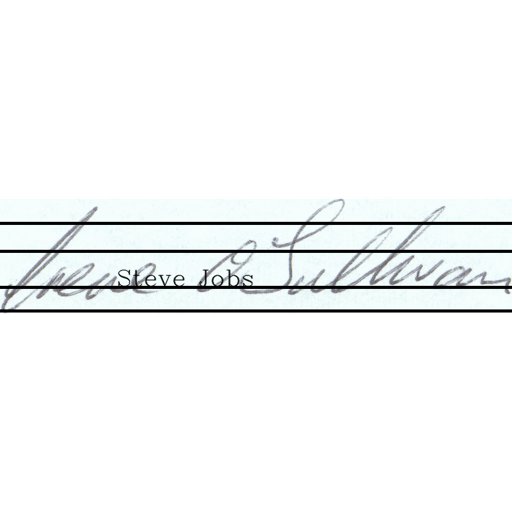 Irene O'Sullivan
Steve Jobs